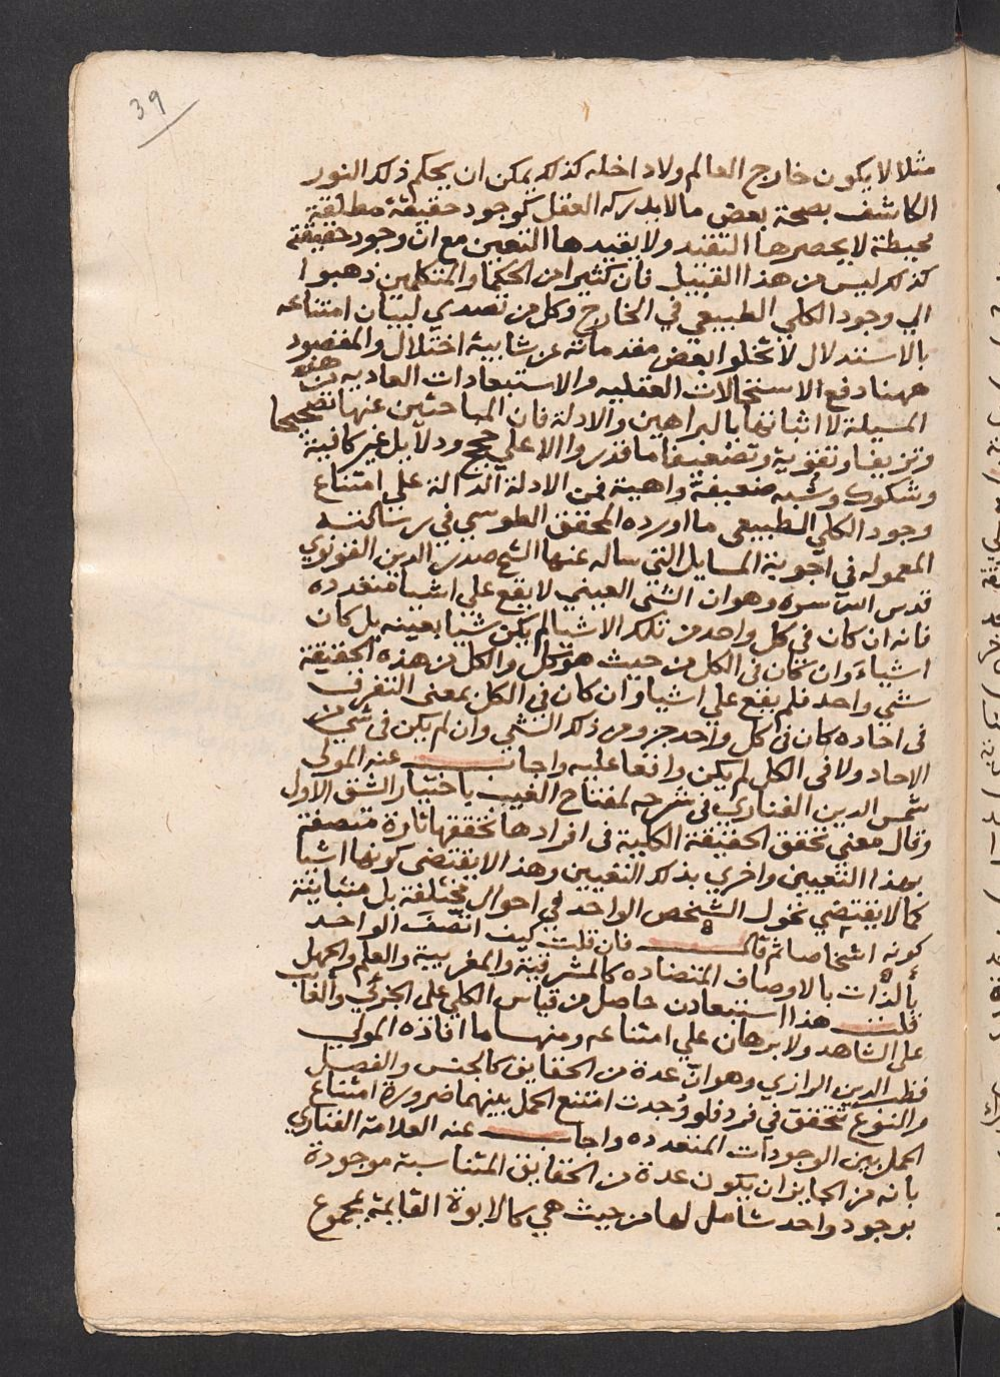 39
مثلا لا يكون خارج العالم ولا داخله كذلك يمكن ان يحكم ذلك النور
الكاشف بصحة بعض ما لا يدركه العقل كوجود حقيقة مطلقة
محيطة لا يحصرها التقيد ولا يقيدها التعين مع ان وجود حقيقة
كذلك ليس من هذا القبيل فان كثيرا من الحكما والمتكلمين ذهبوا
الي وجود الكلي الطبيعي في الخارج وكل من تصدي لبيان امتناعه
بالاستدلال لا تخلوا بعض مقدماته عن شايبة اختلال والمقصود
ههنا دفع الاستحالات العقليه والاستبعادات العاديه من هذه
المسيلة لا اثباتها بالبراهين والادلة فان المباحثين عنها تصحيحا
وتزييفا وتقوية وتضعيفا ما قدروا الا علي حجج ودلايل غير كافية
وشكوك وشبه ضعيفة واهية فمن الادلة الدالة علي امتناع
وجود الكلي الطبيعي ما اورده المحقق الطوسي في رسالته
المعموله في اجوبة المسايل التي ساله عنها الشيخ صدر الدين القونوي
قدس الله سره وهو ان الشي العيني لا يقع علي اشيا متعدده
فانه ان كان في كل واحد من تلك الاشيا لم يكن شيا بعينه بل كان
اشياء وان كان في الكل من حيث هو كل والكل من هذه الحقيقة
شي واحد فلم يقع علي اشيا وان كان في الكل بمعني التفرق
في احاده كان في كل واحد جزو من ذلك الشي وان لم يكن في شي من
الاحاد ولا في الكل لم يكن واقعا عليه واجاب عنه المولى
شمس الدين الفناري في شرحه لمفتاح الغيب باختيار الشق الاول
وقال معني تحقق الحقيقة الكلية في افرادها تحققها تارة متصفة
بهذا التعيين واخري بذلك التعيين وهذا لا يقتضي كونها اشيا
كما لا يقتضي تحول الشخص الواحد في احوال مختلفة بل متباينة
كونه اشخاصا ثم قال فان قلت كيف اتصف الواحد
بالذات بالاوصاف المتضاده كالمشرقية والمغربية والعلم والجهل
قلت هذا استبعاد حاصل من قياس الكلي على الجزئي والغايب
على الشاهد ولا برهان علي امتناعه ومنها ما افاده المولى
قطب الدين الرازي وهو ان عدة من الحقايق كالجنس والفصل
والنوع تتحقق في فرد فلو وجدت امتنع الحمل بينهما ضرورة امتناع
الحمل بين الوجودات المتعدده واجاب عنه العلامة الفناري
بانه من الجايز ان يكون عدة من الحقايق المتناسبة موجودة
بوجود واحد شامل لها من حيث هي كالابوة القايمة بمجموع